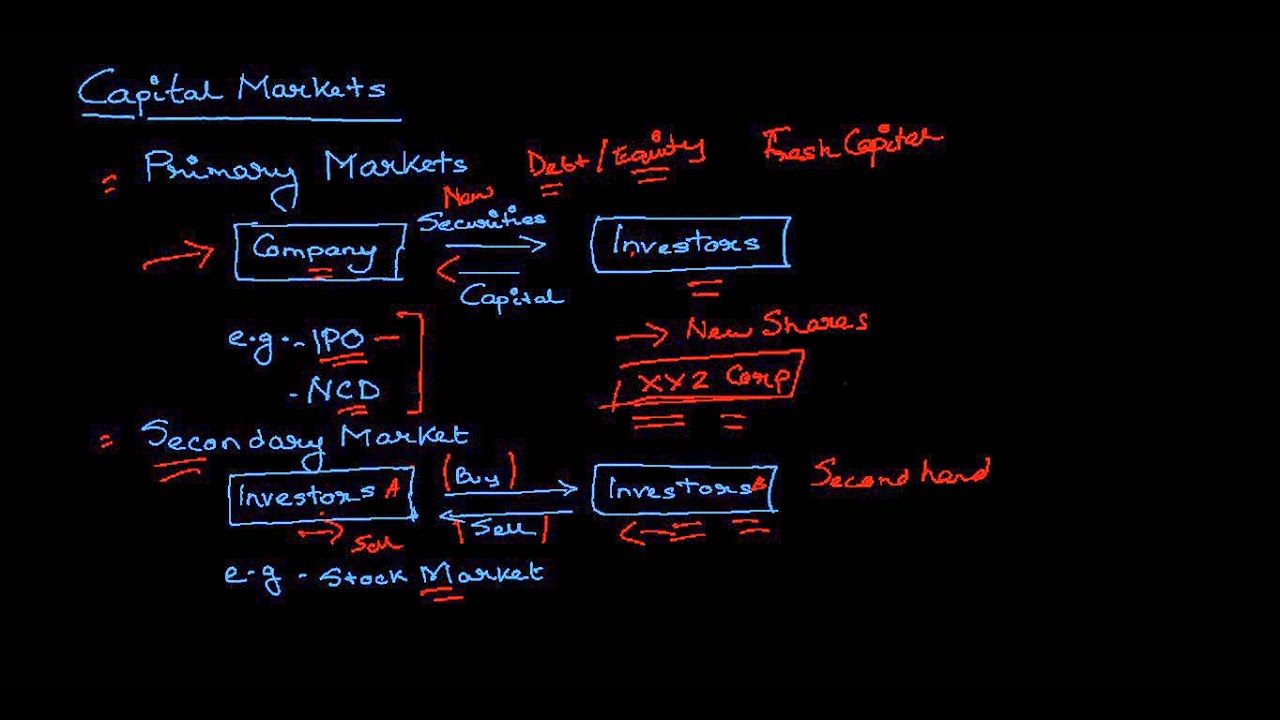 Capital Markets
= Primary Markets Debt / Equity Fresh Capital
New
Securities
Company Investors
Capital
e.g. - IPO → New Shares
- NCD XYZ Corp
= Secondary Market
Investors A (Buy) Investors B Second hand
Sell
Sell
e.g - Stock Market